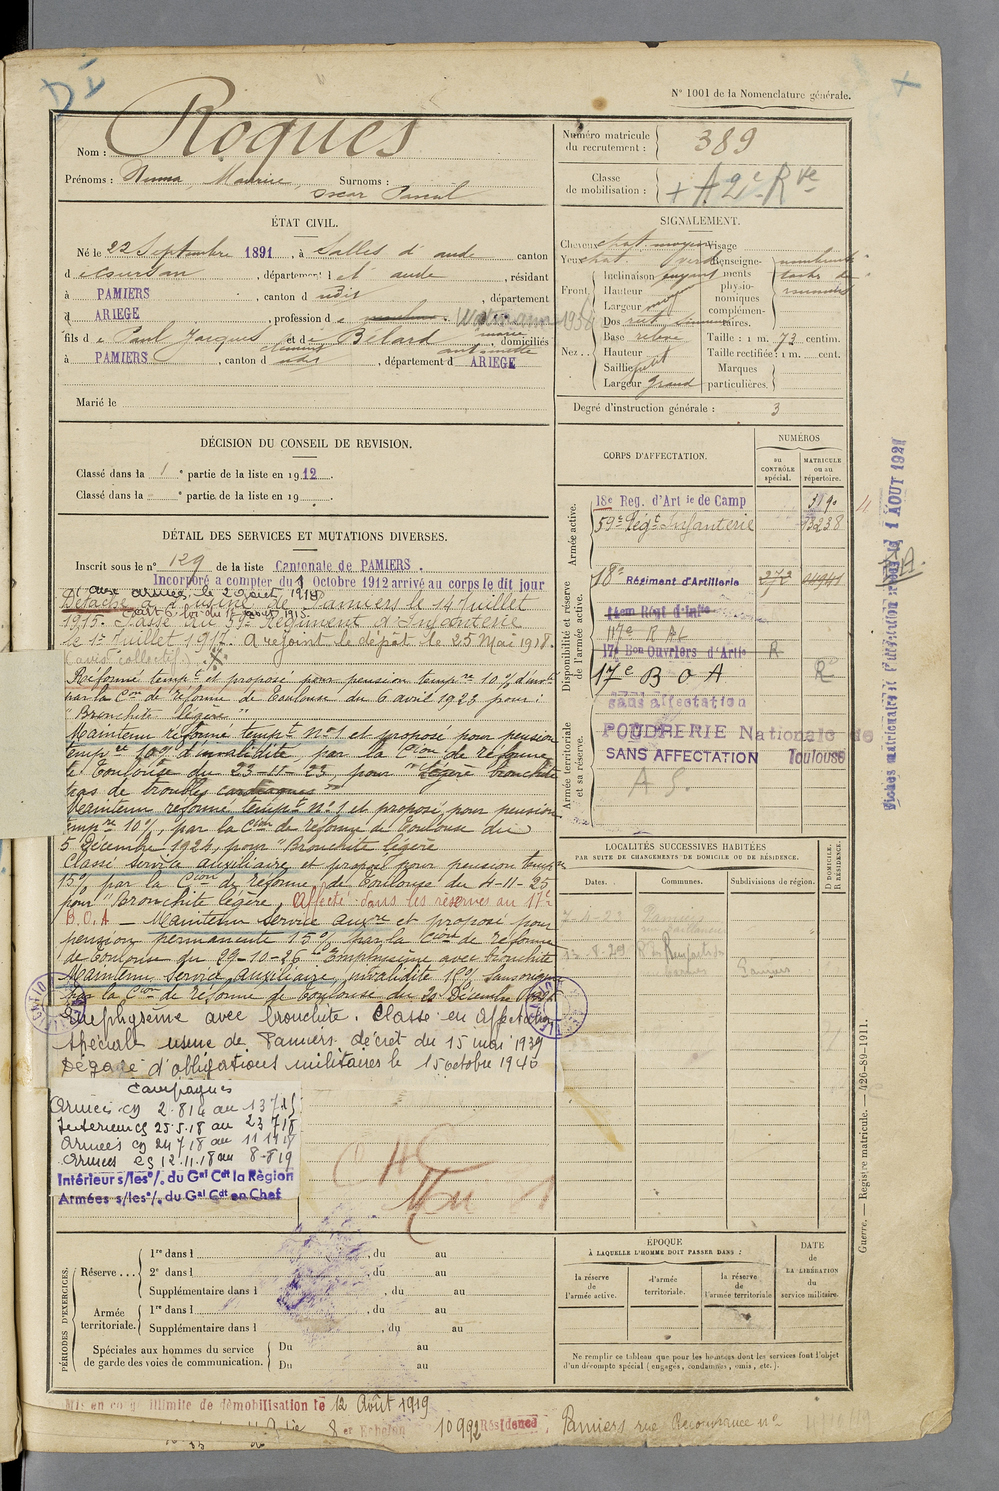 N° 1001 de la Nomenclature générale.
Nom : Roques
Prénoms : Numa, Maurice, Surnoms :
Oscar Pascal
Numéro matricule du recrutement : 389
Classe de mobilisation : + A 2e Rve
ÉTAT CIVIL.
Né le 22 Septembre 1891, à Salles d'aude canton
d e Coursan, département d et aude, résidant
à PAMIERS, canton d udit, département
d ARIEGE, profession d e
fils d e Paul Jacques et de Bélard marie, domiciliés
à PAMIERS, canton d udit, département d ARIEGE
Marié le
SIGNALEMENT.
Cheveux chat. moyen Visage
Yeux chat. verd Renseignements physionomiques complémentaires.
Front. Inclinaison fuyant
Hauteur moy
Largeur moy
Nez. Dos rect. sinueux
Base relevée
Hauteur
Saillie petit
Largeur grand
nombreuses taches de rousseur
Taille : 1 m. 73 centim.
Taille rectifiée : 1 m. cent.
Marques particulières.
Degré d'instruction générale : 3
DÉCISION DU CONSEIL DE REVISION.
Classé dans la 1e partie de la liste en 1912.
Classé dans la e partie de la liste en 19
DÉTAIL DES SERVICES ET MUTATIONS DIVERSES.
Inscrit sous le n° 129 de la liste Cantonale de PAMIERS.
Incorporé à compter du 1 Octobre 1912 arrivé au corps le dit jour
aux armées le 2 août 1914
Détaché à l'usine de Pamiers le 14 Juillet
1915. Passé au 59e Régiment d'Infanterie
le 1er Juillet 1917. A rejoint le dépôt le 25 Mai 1918.
(avis collectif).
Réformé tempre et proposé pour pension tempre 10 % d'inv.
par la Con de réforme de Toulouse du 6 avril 1923 pour :
"Bronchite légère"
Maintenu réformé tempt n° 1 et proposé pour pension
tempre 10 % d'invalidité, par la Cion de réforme
de Toulouse du 23-11-23, pour "légère bronchite
pas de troubles cardiaques"
Maintenu réformé tempt n° 1 et proposé pour pension
tempre 10 %, par la Cion de réforme de Toulouse du
5 Décembre 1924, pour "Bronchite légère
Classé Service auxiliaire et proposé pour pension tempre
15 % par la Cion de réforme de Toulouse du 4-11-25
pour "Bronchite légère, Affecté dans les réserves au 17e
B.O.A - Maintenu service auxre et proposé pour
pension permanente 15 % par la Cion de réforme
de Toulouse du 29-10-26 Emphysème avec bronchite
Maintenu Service auxiliaire, invalidité 15 %
par la Cion de réforme de Toulouse du
Emphysème avec bronchite. Classé en Affectation
Spéciale usine de Pamiers décret du 15 mai 1939
Dégagé d'obligations militaires le 15 octobre 1940
Campagnes
Armées cg 2.8.14 au 13.7.15
Intérieur cg 25.5.18 au 23 7 18
Armées cg 24 7 18 au 11 11 18
Armées cg 12.11.18 au 8-8 19
Intérieur s/les o/. du Gal Cdt la Région
Armées s/les o/. du Gal Cdt en Chef
CORPS D'AFFECTATION.
NUMÉROS
au CONTRÔLE spécial.
MATRICULE ou au répertoire.
Armée active.
18e Reg. d'Art ie de Camp
59e Régt Infanterie 13238
Disponibilité et réserve de l'armée active.
18e Régiment d'Artillerie 272
14em Régt d'Infie
117e R A L
17e Bon Ouvriers d'Artie R
17e B O A R
Armée territoriale et sa réserve.
sans affectation
POUDRERIE Nationale de Toulouse
SANS AFFECTATION
A S.
Fiches matricules
1 AOUT 1921
LOCALITÉS SUCCESSIVES HABITÉES
PAR SUITE DE CHANGEMENTS DE DOMICILE OU DE RÉSIDENCE.
Dates. Communes. Subdivisions de région.
D. DOMICILE. R. RÉSIDENCE.
7-4-23 Pamiers
13.8.29 Pamiers
PÉRIODES D'EXERCICES.
Réserve... 1re dans l , du au
2e dans l , du au
Supplémentaire dans l , du au
Armée territoriale. 1re dans l , du au
Supplémentaire dans l , du au
Spéciales aux hommes du service de garde des voies de communication. Du au
Du au
ÉPOQUE
À LAQUELLE L'HOMME DOIT PASSER DANS :
la réserve de l'armée active.
l'armée territoriale.
la réserve de l'armée territoriale
DATE de LA LIBÉRATION du service militaire.
Ne remplir ce tableau que pour les hommes dont les services font l'objet
d'un décompte spécial (engagés, condamnés, omis, etc.).
Guerre. — Registre matricule. — 426-89-1911.
Mis en congé illimité de démobilisation le 12 Août 1919
8 er Echelon 10992 Résidence : Pamiers rue